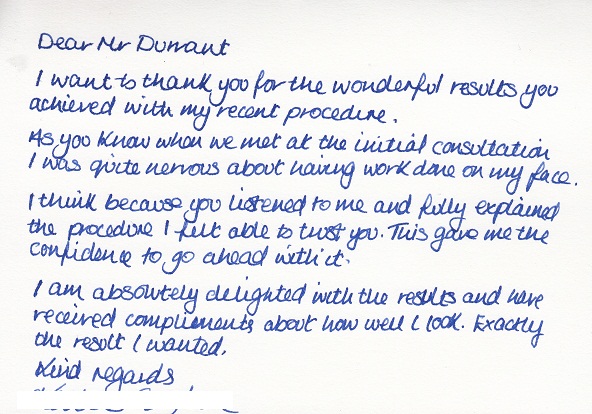 Dear Mr Durrant
I want to thank you for the wonderful results you
achieved with my recent procedure.
As you know when we met at the initial consultation
I was quite nervous about having work done on my face.
I think because you listened to me and fully explained
the procedure I felt able to trust you. This gave me the
confidence to go ahead with it.
I am absolutely delighted with the results and have
received compliments about how well I look. Exactly
the result I wanted.
Kind regards